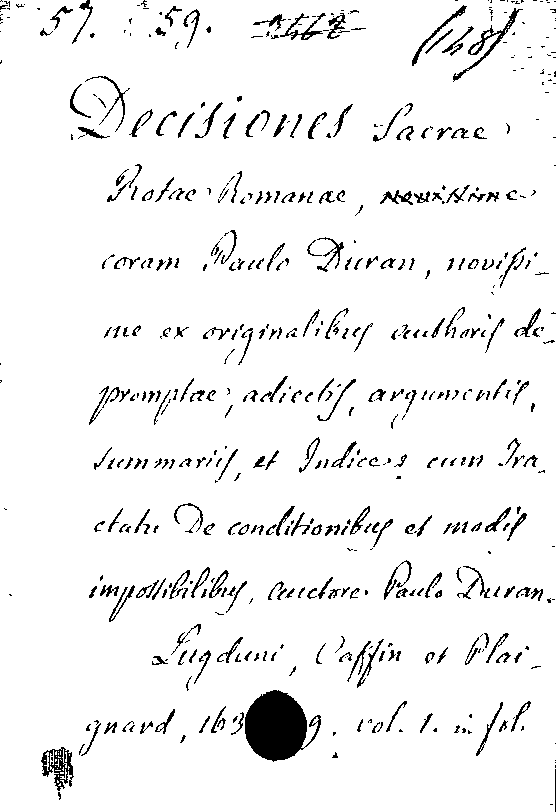 57. : 59. 2462 (148)
Decisiones Sacrae
Rotae Romanae, novissime
coram Paulo Duran, novissi-
me ex originalibus authoris de-
promptae, adiectis, argumentis,
summariis, et Indice, cum Tra-
ctatu De conditionibus et modis
impossibilibus, auctore Paulo Duran.
Lugduni, Caffin et Plai-
gnard, 163 9. vol. 1. in fol.